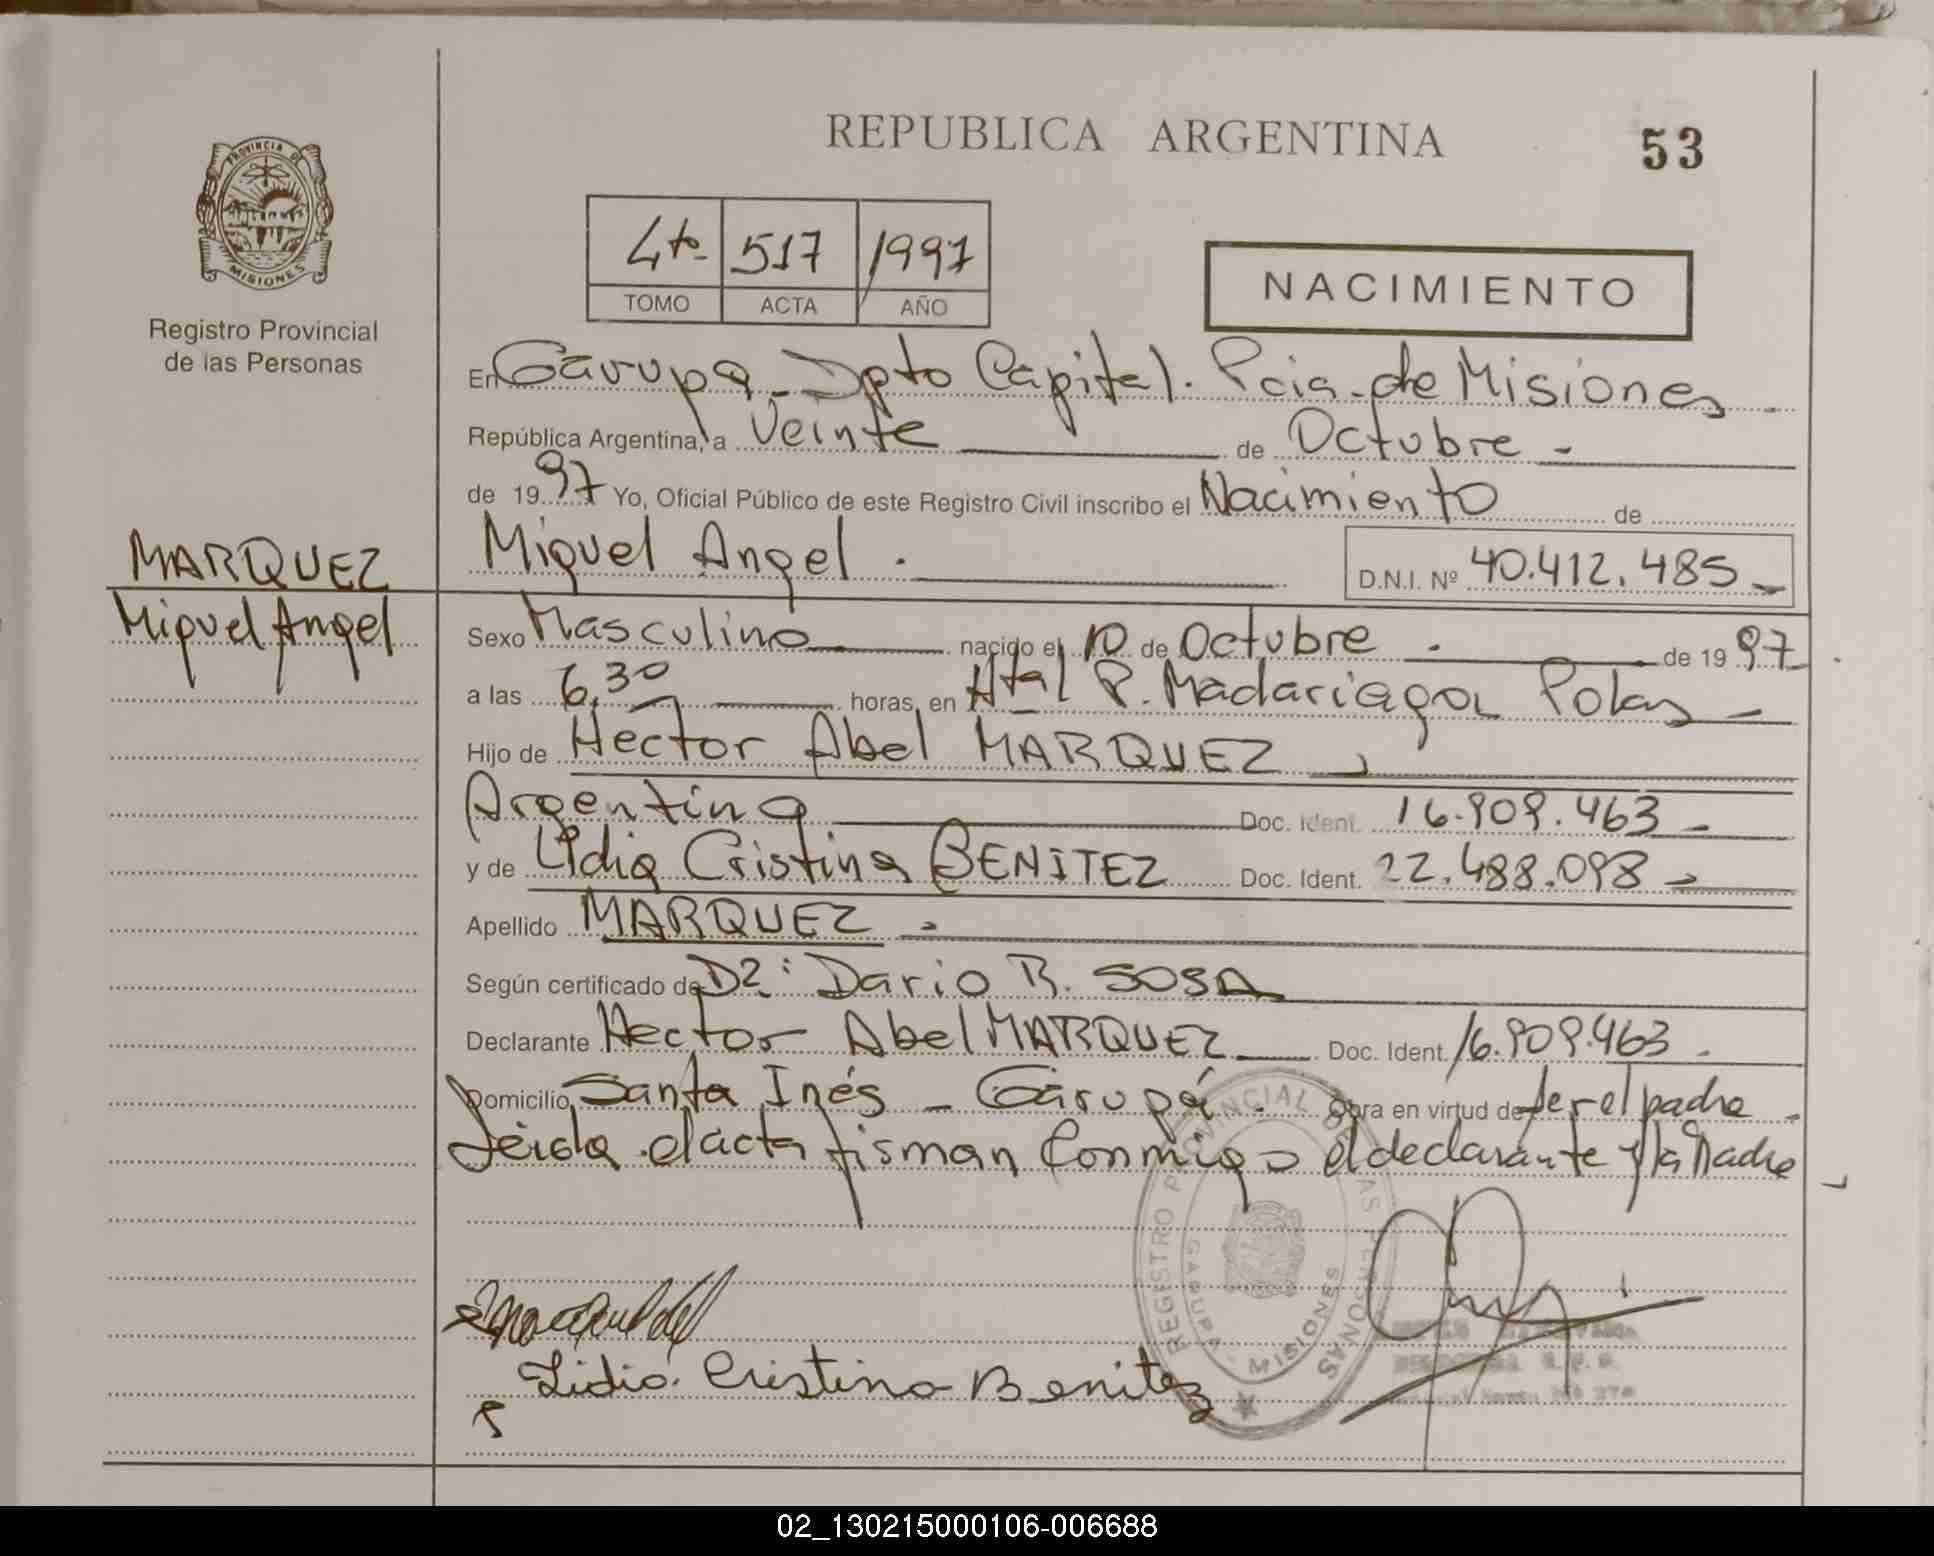 REPUBLICA ARGENTINA
53
PROVINCIA DE
MISIONES
Registro Provincial
de las Personas
4to 517 1997
TOMO ACTA AÑO
NACIMIENTO
En Garupa - Dpto Capital. Pcia. de Misiones -
República Argentina, a Veinte de Octubre -
de 1997 Yo, Oficial Público de este Registro Civil inscribo el Nacimiento de
MARQUEZ
Miguel Angel
Miguel Angel .
D.N.I. Nº 40.412.485 -
Sexo Masculino nacido el 10 de Octubre . de 1997
a las 6,30 horas, en Htal R. Madariaga Pdas -
Hijo de Hector Abel MARQUEZ
Argentina Doc. Ident. 16.909.463 -
y de Lidia Cristina BENITEZ Doc. Ident. 22.488.098 -
Apellido MARQUEZ -
Según certificado de Dr: Dario R. SOSA
Declarante Hector Abel MARQUEZ Doc. Ident. 16.909.463 .
Domicilio Santa Inés - Garupá . Obra en virtud de ser el padre -
Leida el acta firman conmigo el declarante y la Madre
REGISTRO PROVINCIAL DE LAS PERSONAS
GARUPA - MISIONES
Lidia Cristina Benitez
02_130215000106-006688